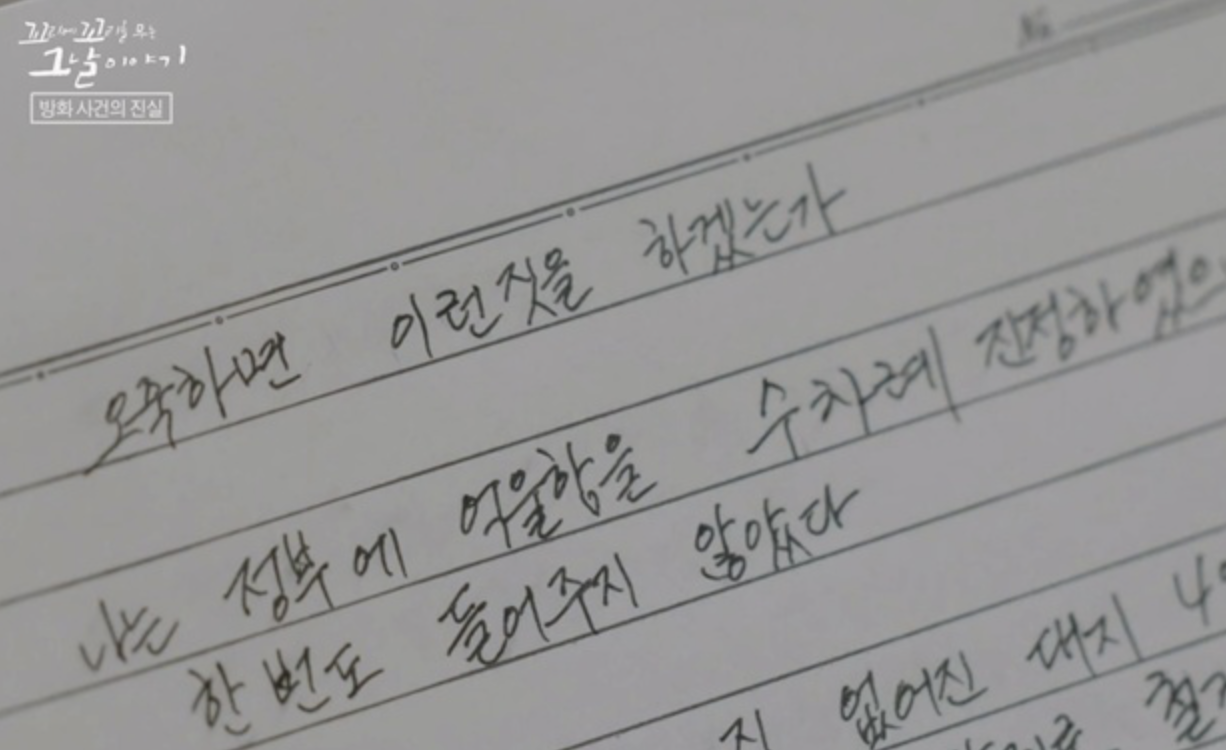 꼬리에 꼬리를 무는
그날 이야기
방화 사건의 진실
No
오죽하면 이런짓을 하겠는가
나는 정부에 억울함을 수차례 진정하였으
한번도 들어주지 않았다
지 없어진 대지 4